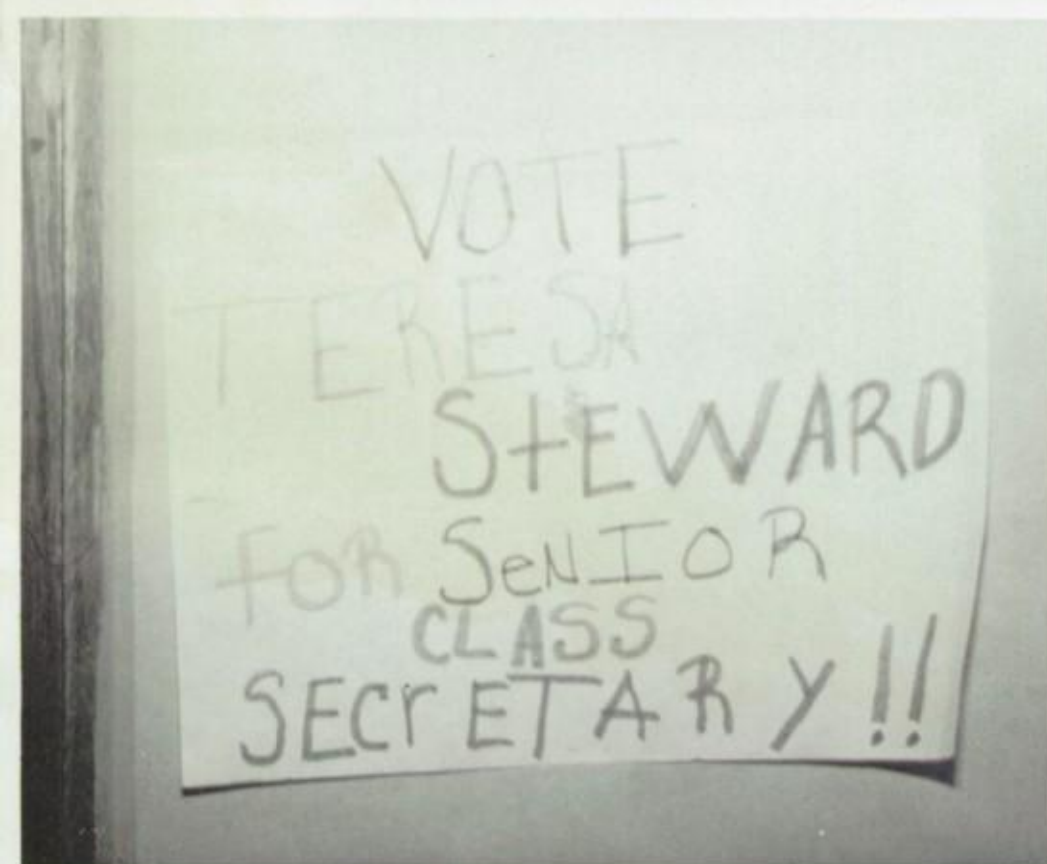 VOTE
TERESA
StEWARD
foR SeNIOR
CLASS
SECrETARY!!